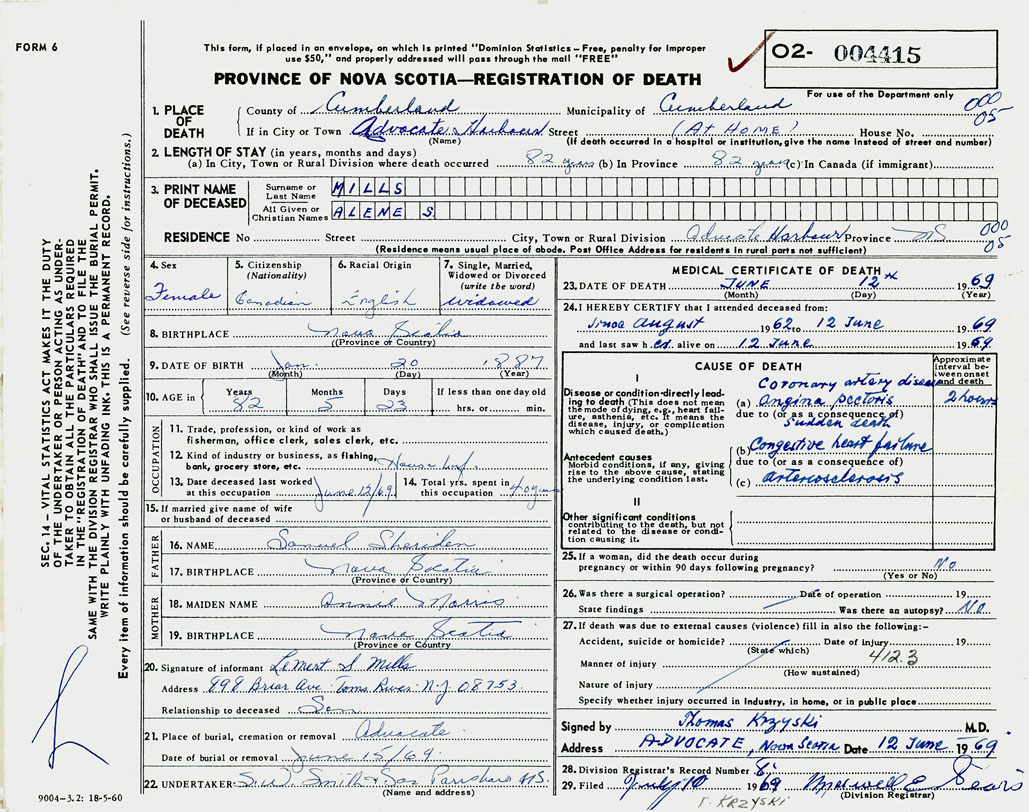 FORM 6
This form, if placed in an envelope, on which is printed "Dominion Statistics – Free, penalty for improper
use $50," and properly addressed will pass through the mail "FREE"
O2- 004415
For use of the Department only
PROVINCE OF NOVA SCOTIA—REGISTRATION OF DEATH
1. PLACE OF DEATH County of Cumberland Municipality of Cumberland 000
If in City or Town Advocate Harbour Street (AT HOME) House No. 05
(Name) (If death occurred in a hospital or institution, give the name instead of street and number)
2. LENGTH OF STAY (in years, months and days)
(a) In City, Town or Rural Division where death occurred 82 years (b) In Province 82 years (c) In Canada (if immigrant)
3. PRINT NAME OF DECEASED
Surname or Last Name MILLS
All Given or Christian Names ALENE S
RESIDENCE No Street City, Town or Rural Division Advocate Harbour Province NS 000 05
(Residence means usual place of abode. Post Office Address for residents in rural parts not sufficient)
4. Sex Female
5. Citizenship (Nationality) Canadian
6. Racial Origin English
7. Single, Married, Widowed or Divorced (write the word) Widowed
8. BIRTHPLACE Nova Scotia
(Province or Country)
9. DATE OF BIRTH Jan. 20 1887
(Month) (Day) (Year)
10. AGE in Years 82 Months 5 Days 23 If less than one day old hrs. or min.
OCCUPATION
11. Trade, profession, or kind of work as fisherman, office clerk, sales clerk, etc.
12. Kind of industry or business, as fishing, bank, grocery store, etc.
13. Date deceased last worked at this occupation June 12/69
14. Total yrs. spent in this occupation 40 years
15. If married give name of wife or husband of deceased
FATHER
16. NAME Samuel Sheriden
17. BIRTHPLACE Nova Scotia
(Province or Country)
MOTHER
18. MAIDEN NAME Annie Morris
19. BIRTHPLACE Nova Scotia
(Province or Country
20. Signature of informant LeMert S Mills
Address 898 Briar Ave. Toms River N.J 08753
Relationship to deceased Son
21. Place of burial, cremation or removal Advocate
Date of burial or removal June 15/69.
22. UNDERTAKER: S.W. Smith & Son Parrsboro NS.
(Name and address)
9004–3.2: 18-5-60
MEDICAL CERTIFICATE OF DEATH
23. DATE OF DEATH JUNE 12th 1969
(Month) (Day) (Year)
24. I HEREBY CERTIFY that I attended deceased from:
since August 1962 to 12 June 1969
and last saw her alive on 12 June 1969
CAUSE OF DEATH
Approximate interval between onset and death
I
Disease or condition directly leading to death (This does not mean the mode of dying, e.g., heart failure, asthenia, etc. It means the disease, injury, or complication which caused death.)
Coronary artery disease
(a) Angina pectoris 2 hours
due to (or as a consequence of)
Sudden death
Antecedent causes
Morbid conditions, if any, giving rise to the above cause, stating the underlying condition last.
(b) Congestive heart failure
due to (or as a consequence of)
(c) arteriosclerosis
II
Other significant conditions
contributing to the death, but not related to the disease or condition causing it.
25. If a woman, did the death occur during pregnancy or within 90 days following pregnancy? No
(Yes or No)
26. Was there a surgical operation? Date of operation 19
State findings Was there an autopsy? No
27. If death was due to external causes (violence) fill in also the following:–
Accident, suicide or homicide? Date of injury 19
(State which)
412.3
Manner of injury
(How sustained)
Nature of injury
Specify whether injury occurred in industry, in home, or in public place
Signed by Thomas Krzyski M.D.
Address ADVOCATE, Nova Scotia Date 12 June 1969.
28. Division Registrar's Record Number 8
29. Filed July 10 1969 Maxwell E
(Division Registrar)
T. KRZYSKI
SEC. 14 – VITAL STATISTICS ACT MAKES IT THE DUTY
OF THE UNDERTAKER OR PERSON ACTING AS UNDER-
TAKER TO OBTAIN ALL THE PARTICULARS REQUIRED
IN THE "REGISTRATION OF DEATH" AND TO FILE THE
SAME WITH THE DIVISION REGISTRAR WHO SHALL ISSUE THE BURIAL PERMIT.
WRITE PLAINLY WITH UNFADING INK. THIS IS A PERMANENT RECORD.
Every item of information should be carefully supplied. (See reverse side for instructions.)